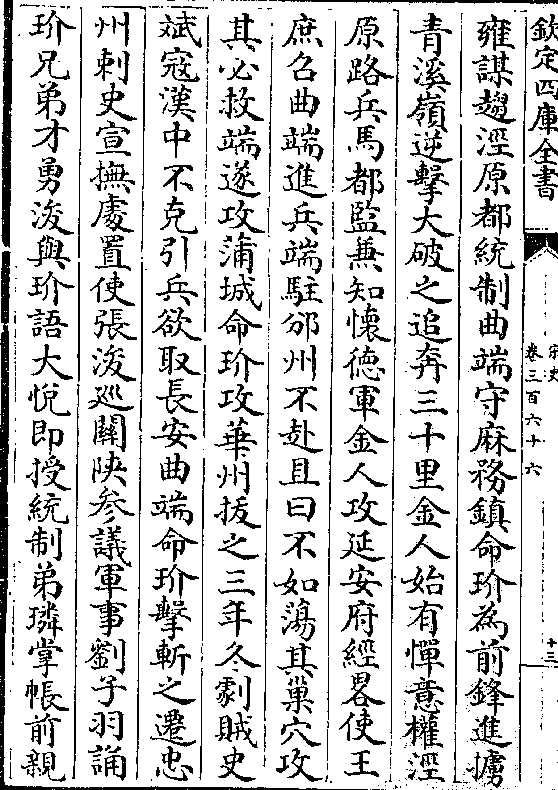 欽定四庫全書
宋史
卷三百六十六
十三
雍謀趨涇原都統制曲端守麻務鎮命玠為前鋒進據
青溪嶺逆擊大破之追奔三十里金人始有憚意權涇
原路兵馬都監兼知懷德軍金人攻延安府經畧使王
庶召曲端進兵端駐邠州不赴且曰不如蕩其巢穴攻
其必救端遂攻蒲城命玠攻華州拔之三年冬劇賊史
斌寇漢中不克引兵欲取長安曲端命玠擊斬之遷忠
州刺史宣撫處置使張浚巡關陜参議軍事劉子羽誦
玠兄弟才勇浚與玠語大悅即授統制弟璘掌帳前親